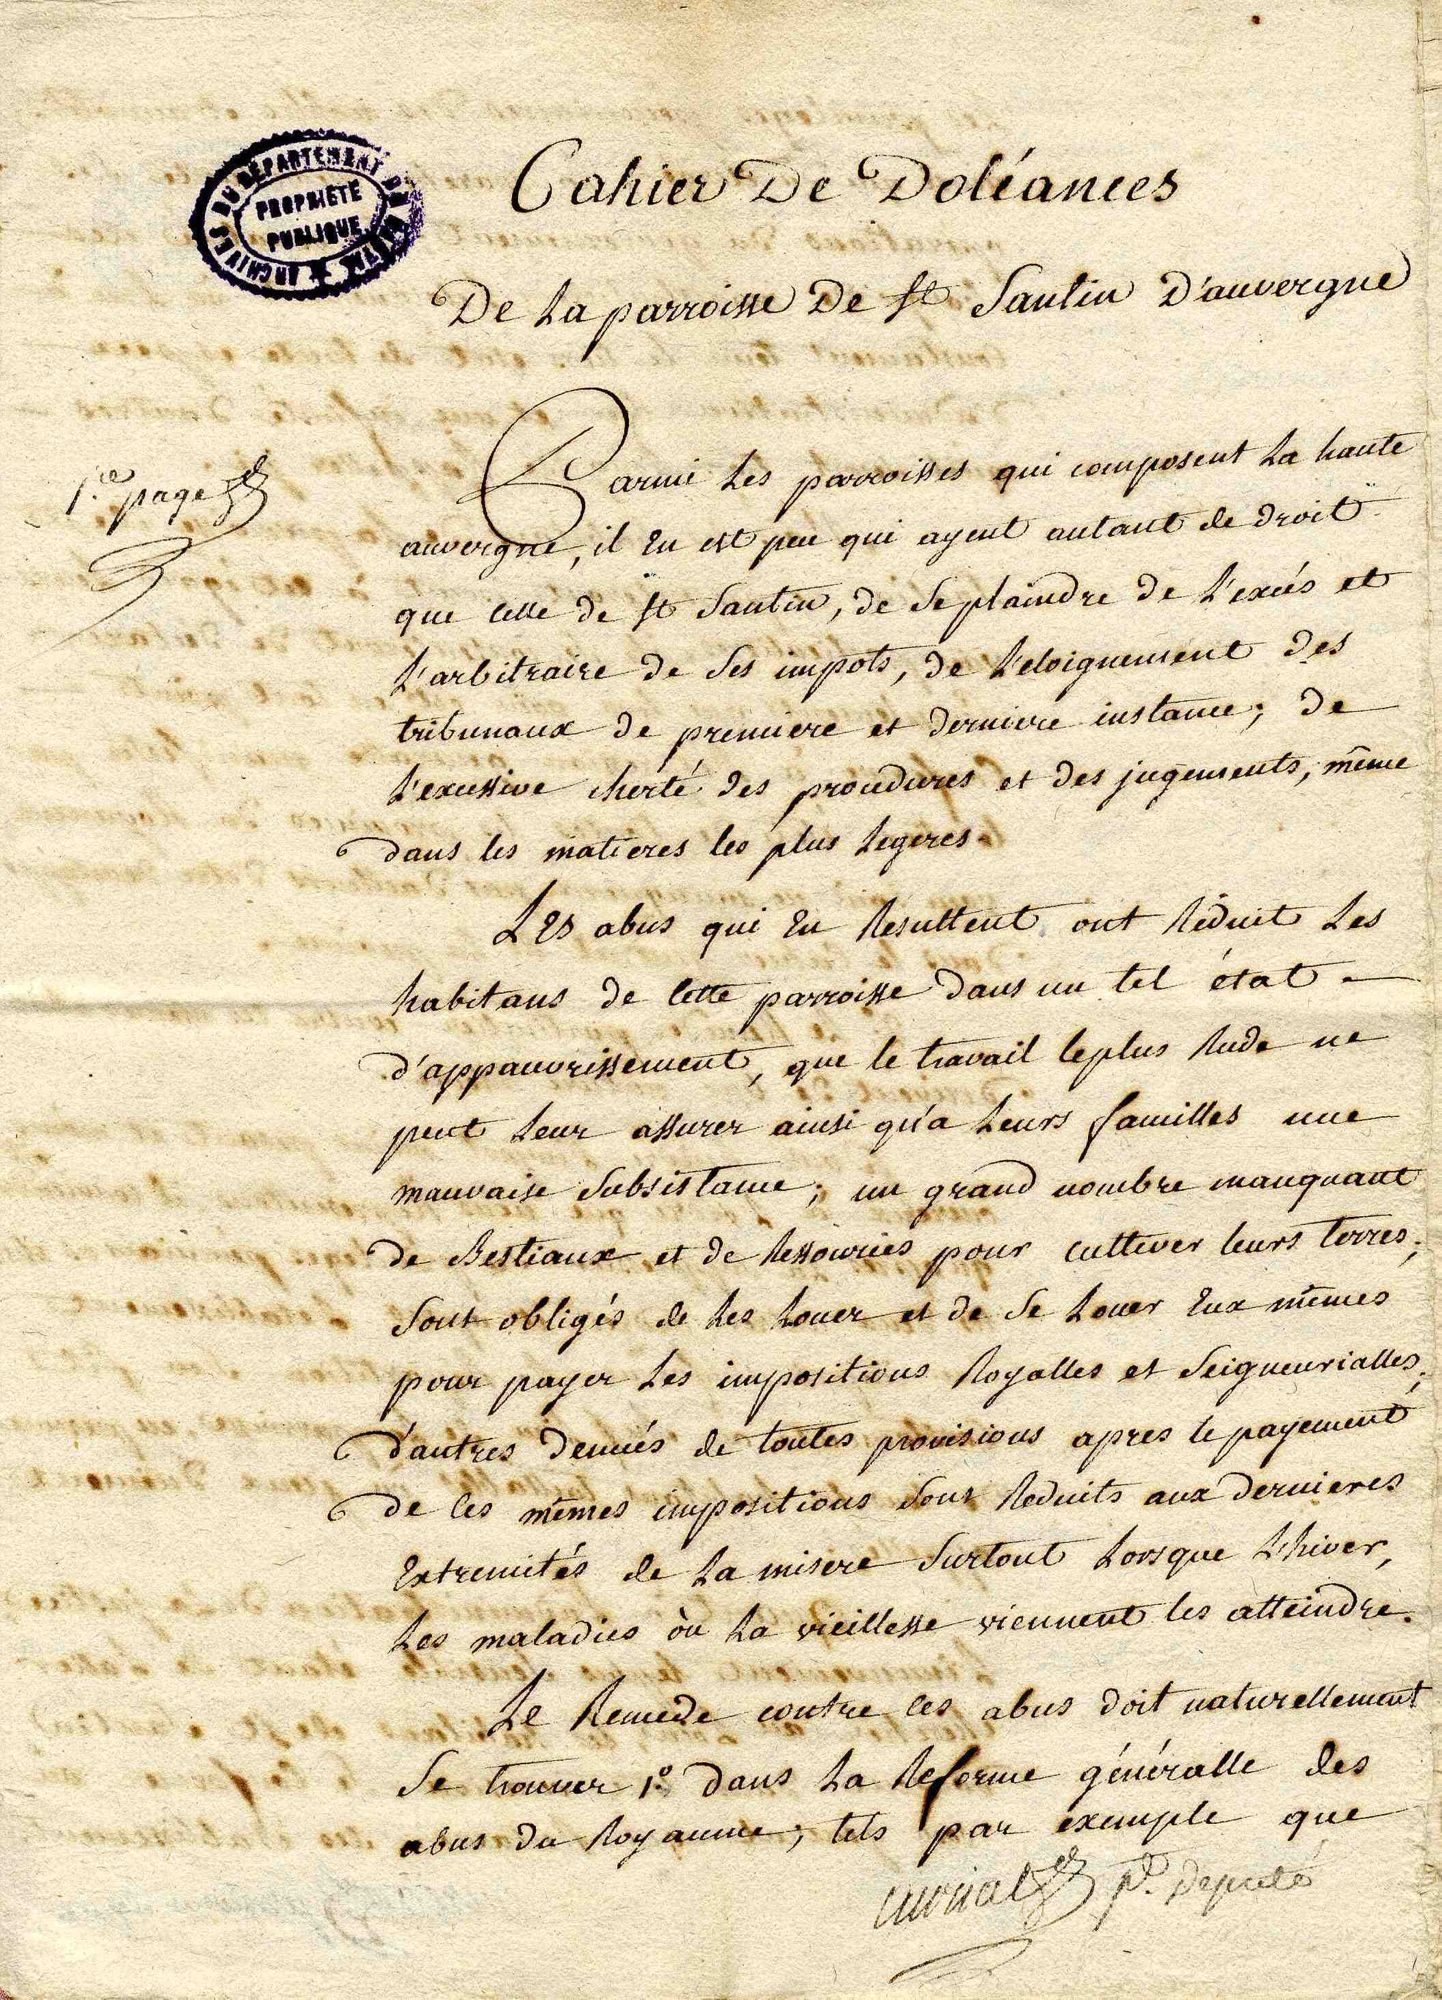 Cahier De Doléances
De La parroisse De St Santin D'auvergne
ARCHIVES DU DÉPARTEMENT DU CANTAL
PROPRIÉTÉ
PUBLIQUE
1.re page
Parmi Les parroisses qui composent La haute
auvergne, il En est peu qui ayent autant de droit
que celle de St Santin, de Se plaindre de L'excés et
L'arbitraire de Ses impots, de L'eloignement des
tribunaux de premiere et derniere instance; de
L'excessive cherté des procedures et des jugements, même
dans les matieres les plus Legeres.
LEs abus qui En Resultent ont Réduit Les
habitans de Cette parroisse dans un tel état
d'appauvrissement, que le travail le plus Rude ne
peut Leur assurer ainsi qu'a Leurs familles une
mauvaise Subsistance; un grand nombre manquant
de Bestiaux et de Ressources pour cultiver leurs terres,
Sont obligés de Les Louer et de Se Louer Eux mêmes
pour payer Les impositions Royalles et Seigneurialles;
d'autres denués de toutes provisions apres le payement
de Ces mêmes impositions Sont Reduits aux dernieres
Extremités de La misere Surtout Lorsque L'hiver,
Les maladies òu La vieillesse viennent les atteindre.
LE Remede contre Ces abus doit naturellement
Se trouver 1.o dans La Reforme généralle des
abus du Royaume; tels par exemple que
pt. Deputé